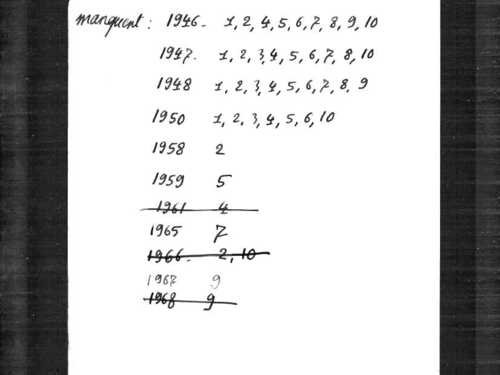 manquent : 1946. 1, 2, 4, 5, 6, 7, 8, 9, 10
1947. 1, 2, 3, 4, 5, 6, 7, 8, 10
1948 1, 2, 3, 4, 5, 6, 7, 8, 9
1950 1, 2, 3, 4, 5, 6, 10
1958 2
1959 5
1961 4
1965 7
1966. 2, 10
1967 9
1968 9